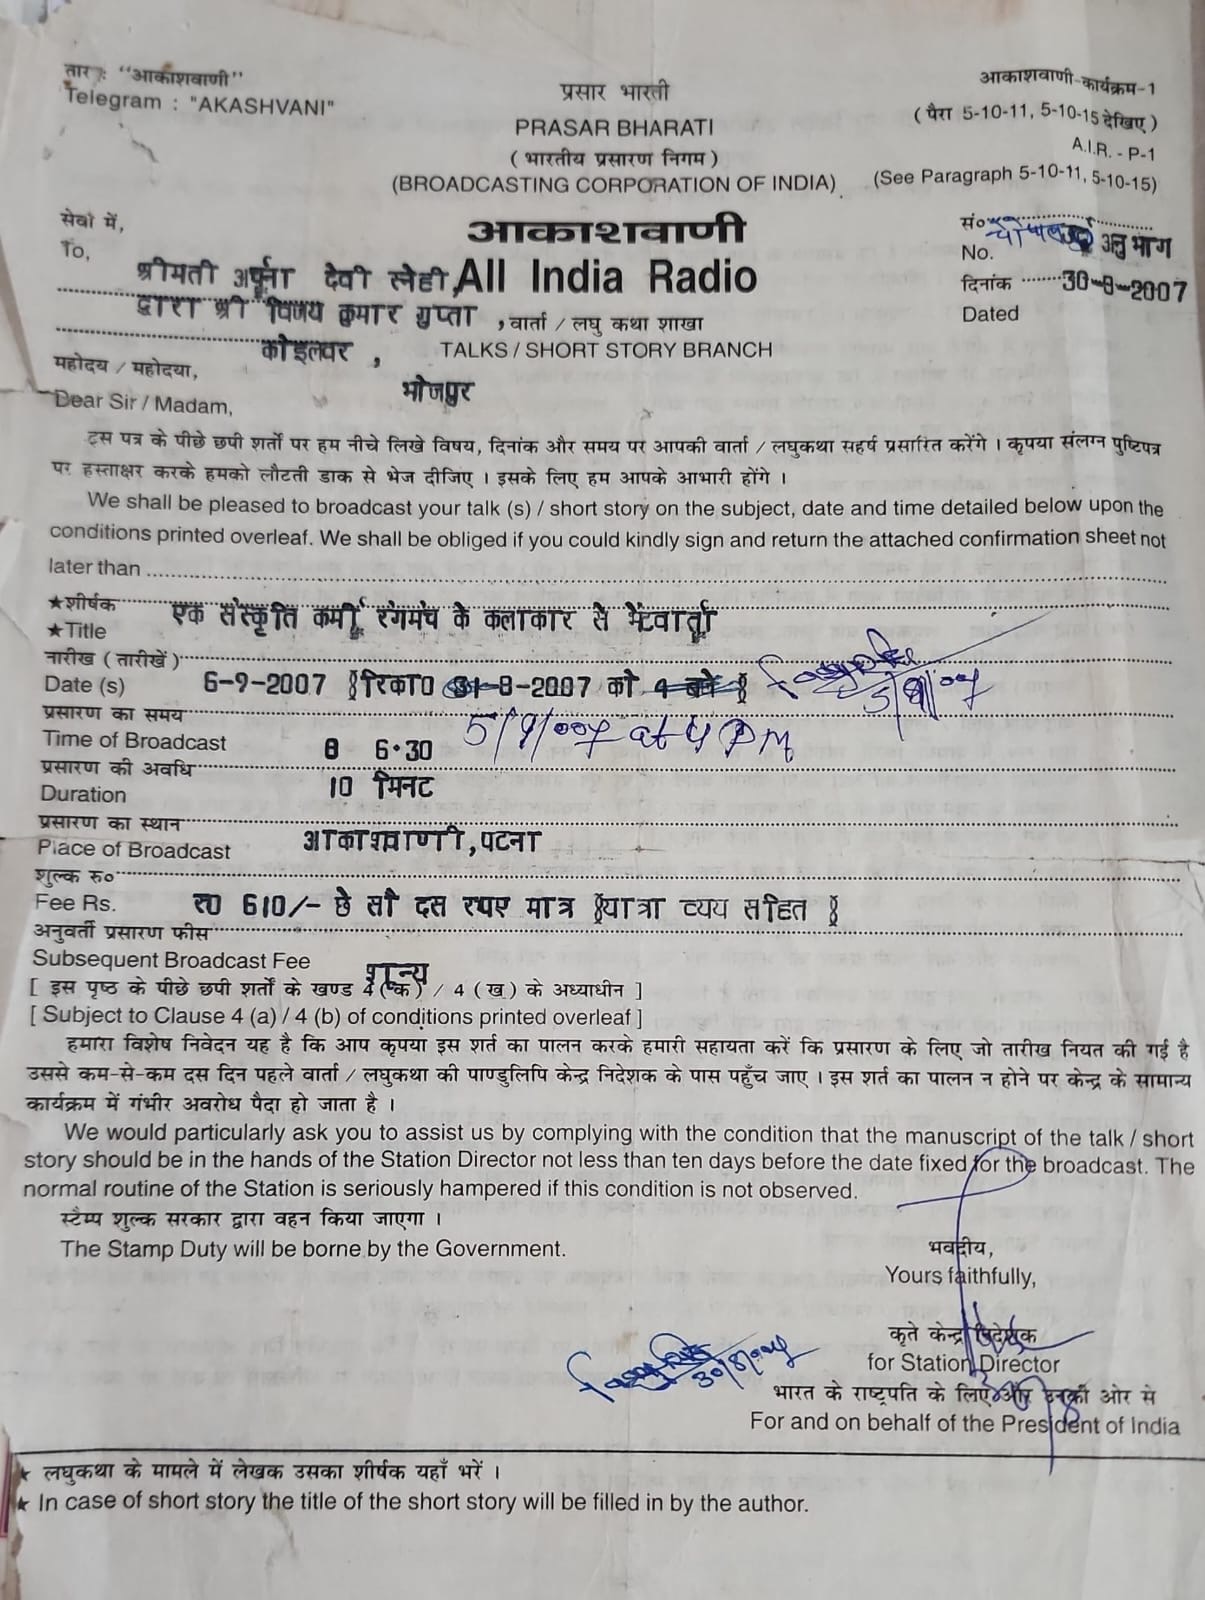 तार : "आकाशवाणी"
Telegram : "AKASHVANI"
प्रसार भारती
PRASAR BHARATI
( भारतीय प्रसारण निगम )
(BROADCASTING CORPORATION OF INDIA)
आकाशवाणी-कार्यक्रम-1
( पैरा 5-10-11, 5-10-15 देखिए )
A.I.R. - P-1
(See Paragraph 5-10-11, 5-10-15)
सेवा में,
To,
आकाशवाणी
All India Radio
सं०
No. अनुभाग
दिनांक 30-8-2007
Dated
श्रीमती अर्पूना देवी स्नेही,
द्वारा श्री विजय कुमार गुप्ता ,
कोइलवर ,
भोजपुर
वार्ता / लघु कथा शाखा
TALKS / SHORT STORY BRANCH
महोदय / महोदया,
Dear Sir / Madam,
इस पत्र के पीछे छपी शर्तों पर हम नीचे लिखे विषय, दिनांक और समय पर आपकी वार्ता / लघुकथा सहर्ष प्रसारित करेंगे । कृपया संलग्न पुष्टिपत्र
पर हस्ताक्षर करके हमको लौटती डाक से भेज दीजिए । इसके लिए हम आपके आभारी होंगे ।
We shall be pleased to broadcast your talk (s) / short story on the subject, date and time detailed below upon the
conditions printed overleaf. We shall be obliged if you could kindly sign and return the attached confirmation sheet not
later than
★शीर्षक एक संस्कृति कर्मी रंगमंच के कलाकार से भेंटवार्ता
★Title
तारीख ( तारीखें )
Date (s) 6-9-2007 रिका0 31-8-2007 को 4 बजे
5/9/007
प्रसारण का समय
Time of Broadcast 8 6·30 5/9/007 at 4 PM
प्रसारण की अवधि
Duration 10 मिनट
प्रसारण का स्थान
Place of Broadcast आकाशवाणी, पटना
शुल्क रु०
Fee Rs. रू0 610/- छे सौ दस रूपए मात्र यात्रा व्यय सहित
अनुवर्ती प्रसारण फीस
Subsequent Broadcast Fee शून्य
[ इस पृष्ठ के पीछे छपी शर्तों के खण्ड 4 ( क ) / 4 ( ख ) के अध्याधीन ]
[ Subject to Clause 4 (a) / 4 (b) of conditions printed overleaf ]
हमारा विशेष निवेदन यह है कि आप कृपया इस शर्त का पालन करके हमारी सहायता करें कि प्रसारण के लिए जो तारीख नियत की गई है
उससे कम-से-कम दस दिन पहले वार्ता / लघुकथा की पाण्डुलिपि केन्द्र निदेशक के पास पहुँच जाए । इस शर्त का पालन न होने पर केन्द्र के सामान्य
कार्यक्रम में गंभीर अवरोध पैदा हो जाता है ।
We would particularly ask you to assist us by complying with the condition that the manuscript of the talk / short
story should be in the hands of the Station Director not less than ten days before the date fixed for the broadcast. The
normal routine of the Station is seriously hampered if this condition is not observed.
स्टैम्प शुल्क सरकार द्वारा वहन किया जाएगा ।
The Stamp Duty will be borne by the Government.
भवदीय,
Yours faithfully,
कृते केन्द्र निदेशक
for Station Director
30/8/007
भारत के राष्ट्रपति के लिए और उनकी ओर से
For and on behalf of the President of India
★ लघुकथा के मामले में लेखक उसका शीर्षक यहाँ भरें ।
★ In case of short story the title of the short story will be filled in by the author.